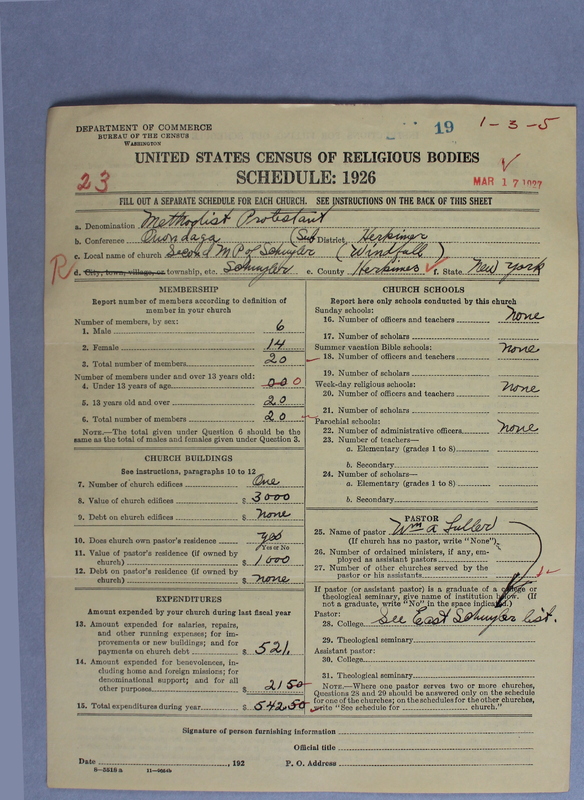 19 1-3-5
DEPARTMENT OF COMMERCE
BUREAU OF THE CENSUS
WASHINGTON
UNITED STATES CENSUS OF RELIGIOUS BODIES
23 SCHEDULE: 1926 MAR 17 1927
FILL OUT A SEPARATE SCHEDULE FOR EACH CHURCH. SEE INSTRUCTIONS ON THE BACK OF THIS SHEET
a. Denomination Methodist Protestant
b. Conference Onondaga (Sub District, Herkimer
c. Local name of church Second M P of Schuyler (Windfall)
R d. City, town, village, or township, etc. Schuyler e. County Herkimer f. State New York
MEMBERSHIP
Report number of members according to definition of
member in your church
Number of members, by sex:
1. Male 6
2. Female 14
3. Total number of members 20
Number of members under and over 13 years old:
4. Under 13 years of age 00 0
5. 13 years old and over 20
6. Total number of members 20
NOTE.—The total given under Question 6 should be the
same as the total of males and females given under Question 3.
CHURCH BUILDINGS
See instructions, paragraphs 10 to 12
7. Number of church edifices One
8. Value of church edifices $ 3000
9. Debt on church edifices $ none
10. Does church own pastor's residence? yes
Yes or No
11. Value of pastor's residence (if owned by
church) $ 1000
12. Debt on pastor's residence (if owned by
church) $ none
EXPENDITURES
Amount expended by your church during last fiscal year
13. Amount expended for salaries, repairs,
and other running expenses; for im-
provements or new buildings; and for
payments on church debt $ 521.
14. Amount expended for benevolences, in-
cluding home and foreign missions; for
denominational support; and for all
other purposes $ 21 50
15. Total expenditures during year $ 542.50
CHURCH SCHOOLS
Report here only schools conducted by this church
Sunday schools:
16. Number of officers and teachers none
17. Number of scholars
Summer vacation Bible schools:
18. Number of officers and teachers none
19. Number of scholars
Week-day religious schools:
20. Number of officers and teachers none
21. Number of scholars
Parochial schools:
22. Number of administrative officers none
23. Number of teachers—
a. Elementary (grades 1 to 8)
b. Secondary
24. Number of scholars—
a. Elementary (grades 1 to 8)
b. Secondary
PASTOR
25. Name of pastor Wm A Fuller
(If church has no pastor, write "None")
26. Number of ordained ministers, if any, em-
ployed as assistant pastors
27. Number of other churches served by the
pastor or his assistants 1
If pastor (or assistant pastor) is a graduate of a college or
theological seminary, give name of institution below. (If
not a graduate, write "No" in the space indicated.)
Pastor:
28. College See East Schuyler list.
29. Theological seminary
Assistant pastor:
30. College
31. Theological seminary
NOTE.—Where one pastor serves two or more churches,
Questions 28 and 29 should be answered only on the schedule
for one of the churches; on the schedules for the other churches,
write "See schedule for church."
Signature of person furnishing information
Official title
Date , 192 P. O. Address